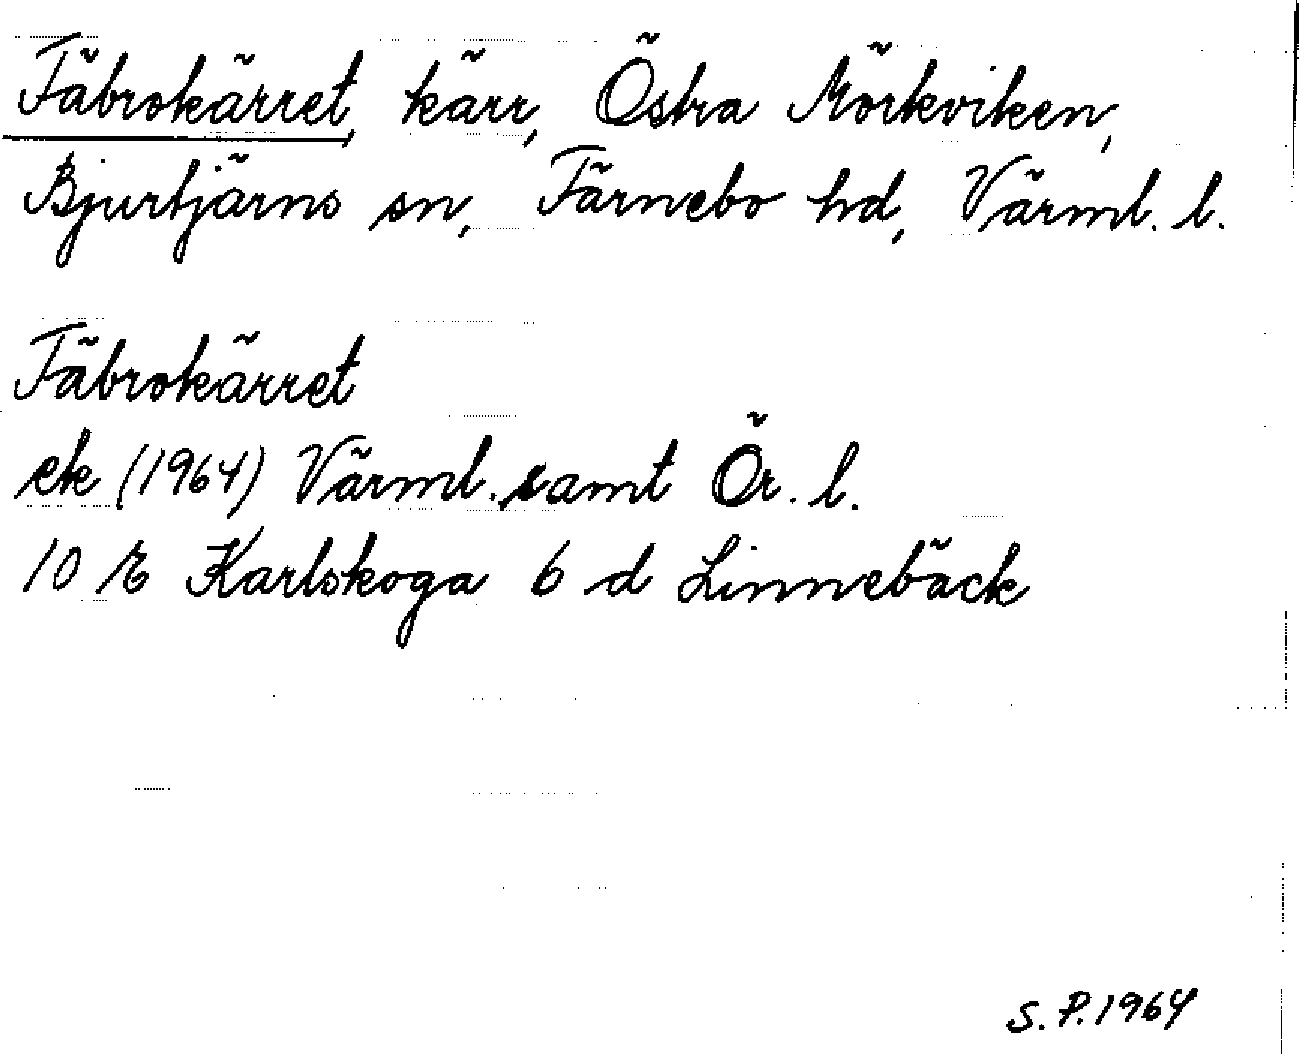 Fäbrokärret, kärr, Östra Mörkviken,
Bjurtjärns sn, Färnebo hd, Värml. l.
Fäbrokärret
ek (1964) Värml. samt Ör. l.
10 E Karlskoga 6 d Linnebäck
S. P. 1964